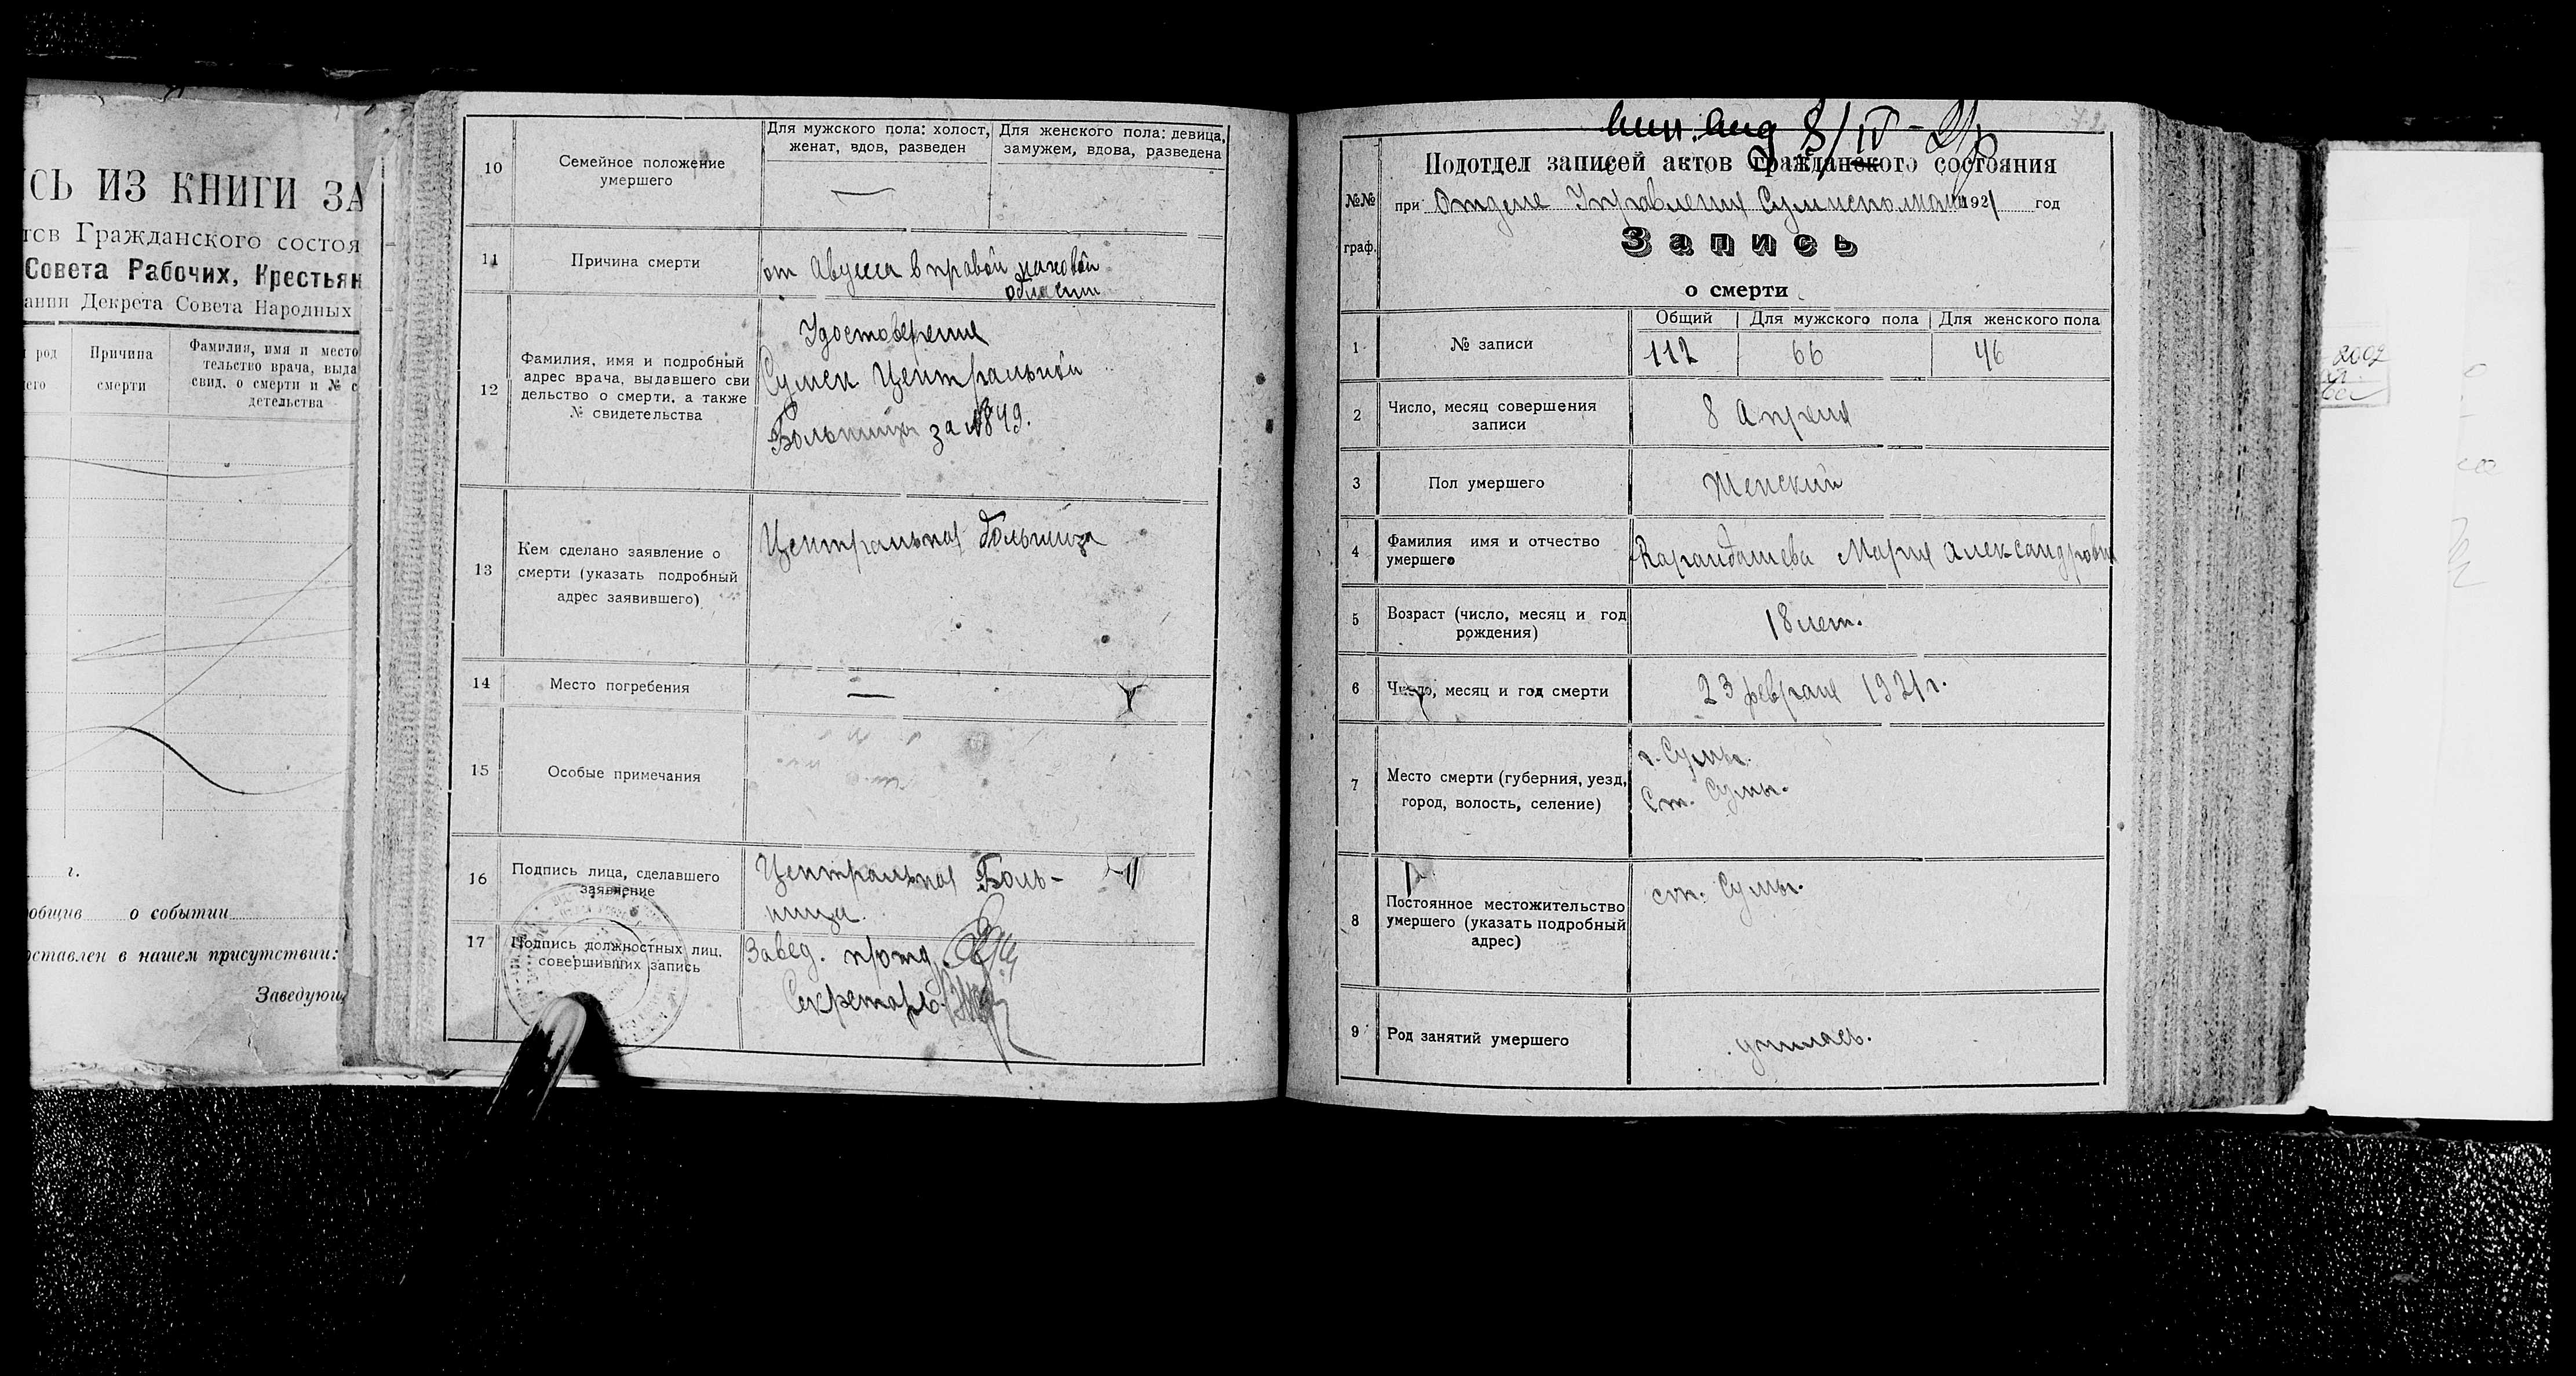 СЬ ИЗ КНИГИ ЗА
тов Гражданского состоя
Совета Рабочих, Крестьян
ании Декрета Совета Народных
род
его
Причина
смерти
Фамилия, имя и место
тельство врача, выда
свид. о смерти и № с
детельства
г.
общив о событии
оставлен в нашем присутствии:
Заведующ
10
Семейное положение
умершего
Для мужского пола: холост,
женат, вдов, разведен
Для женского пола: девица,
замужем, вдова, разведена
—
11
Причина смерти
от Абцесса в правой паховой
области
12
Фамилия, имя и подробный
адрес врача, выдавшего сви
дельство о смерти, а также
№ свидетельства
Удостоверение
Сумск Центральной
Больницы за №849.
13
Кем сделано заявление о
смерти (указать подробный
адрес заявившего)
Центральная больница
14
Место погребения
—
15
Особые примечания
16
Подпись лица, сделавшего
заявление
Центральная Боль-
ница
17
Подпись должностных лиц,
совершивших запись
Завед. п/отд.
Секретарь
8/IV-21
№№
граф.
Подотдел записей актов гражданского состояния
при Отделе Управления Сумисполкома 1921 год
Запись
о смерти
1
№ записи
Общий
Для мужского пола
Для женского пола
112
66
46
2
Число, месяц совершения
записи
8 Апреля
3
Пол умершего
Женский
4
Фамилия имя и отчество
умершего
Карандашева Мария Александровна
5
Возраст (число, месяц и год
рождения)
18 лет.
6
Число, месяц и год смерти
23 февраля 1921 г.
7
Место смерти (губерния, уезд,
город, волость, селение)
г. Сумы.
Ст. Сумы.
8
Постоянное местожительство
умершего (указать подробный
адрес)
ст. Сумы.
9
Род занятий умершего
училась.
2002